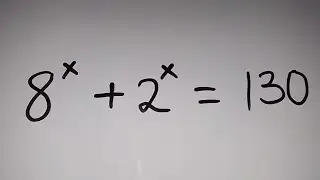 8ˣ + 2ˣ = 130